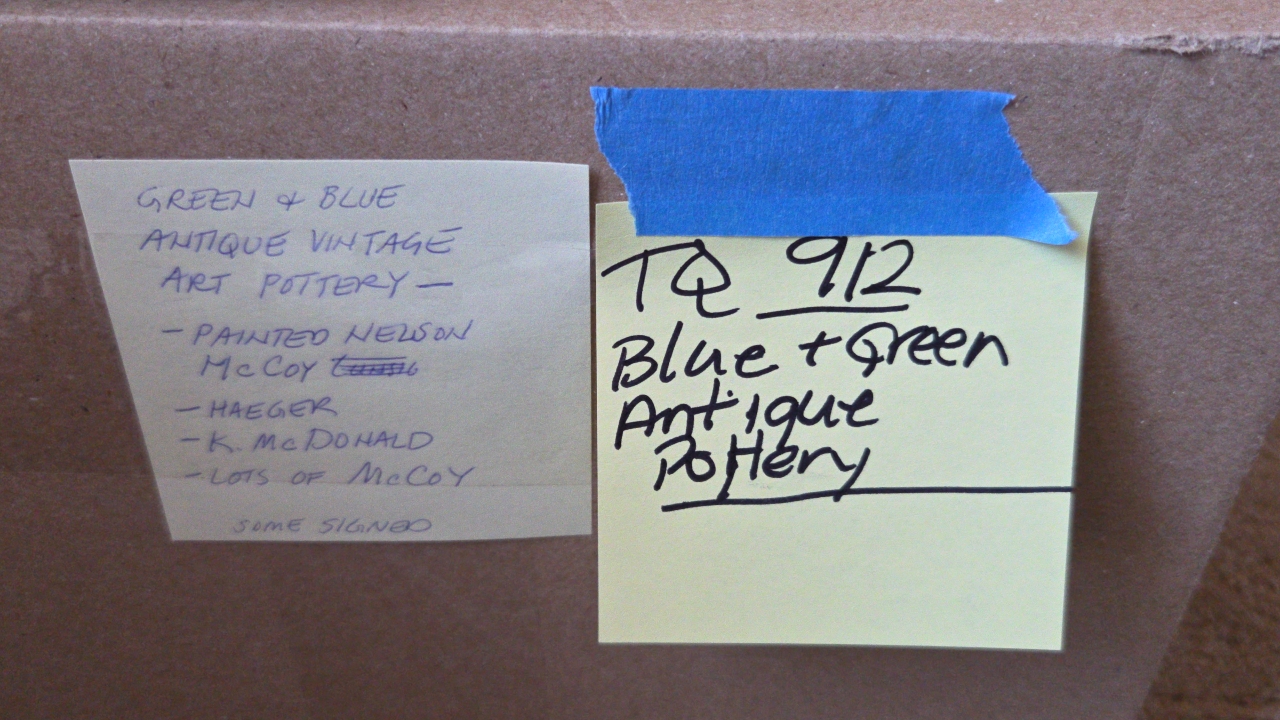 GREEN & BLUE
ANTIQUE VINTAGE
ART POTTERY —
- PAINTED NELSON
McCOY
- HAEGER
- K. McDONALD
- LOTS OF McCOY
SOME SIGNED
TQ 912
Blue + Green
Antique
Pottery